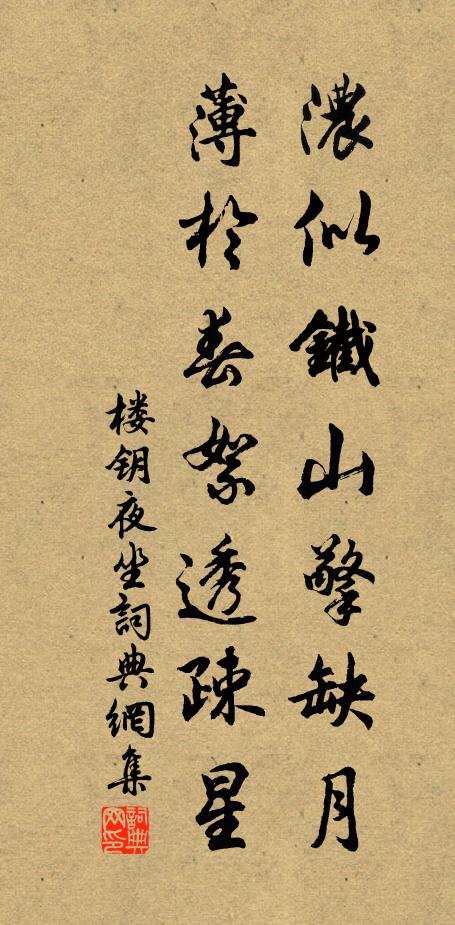 濃似鐵山擎缺月
薄於春絮透疎星
楼钥夜坐詞典網集
詞典网印